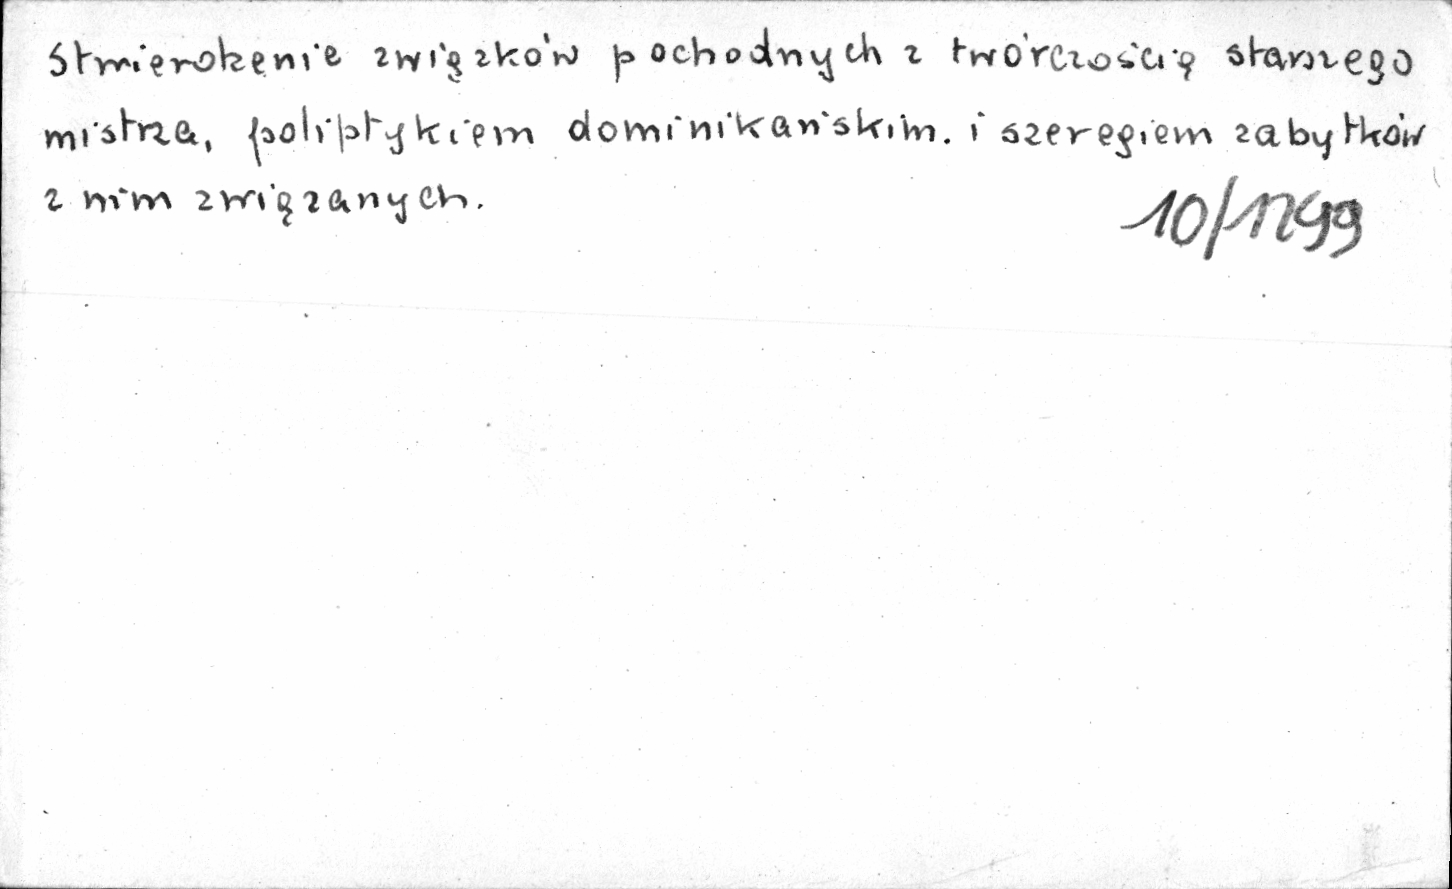 Stwierdzenie związków pochodnych z twórczością starszego
mistrza, poliptykiem dominikańskim. i szeregiem zabytków
z nim związanych.
10/1299